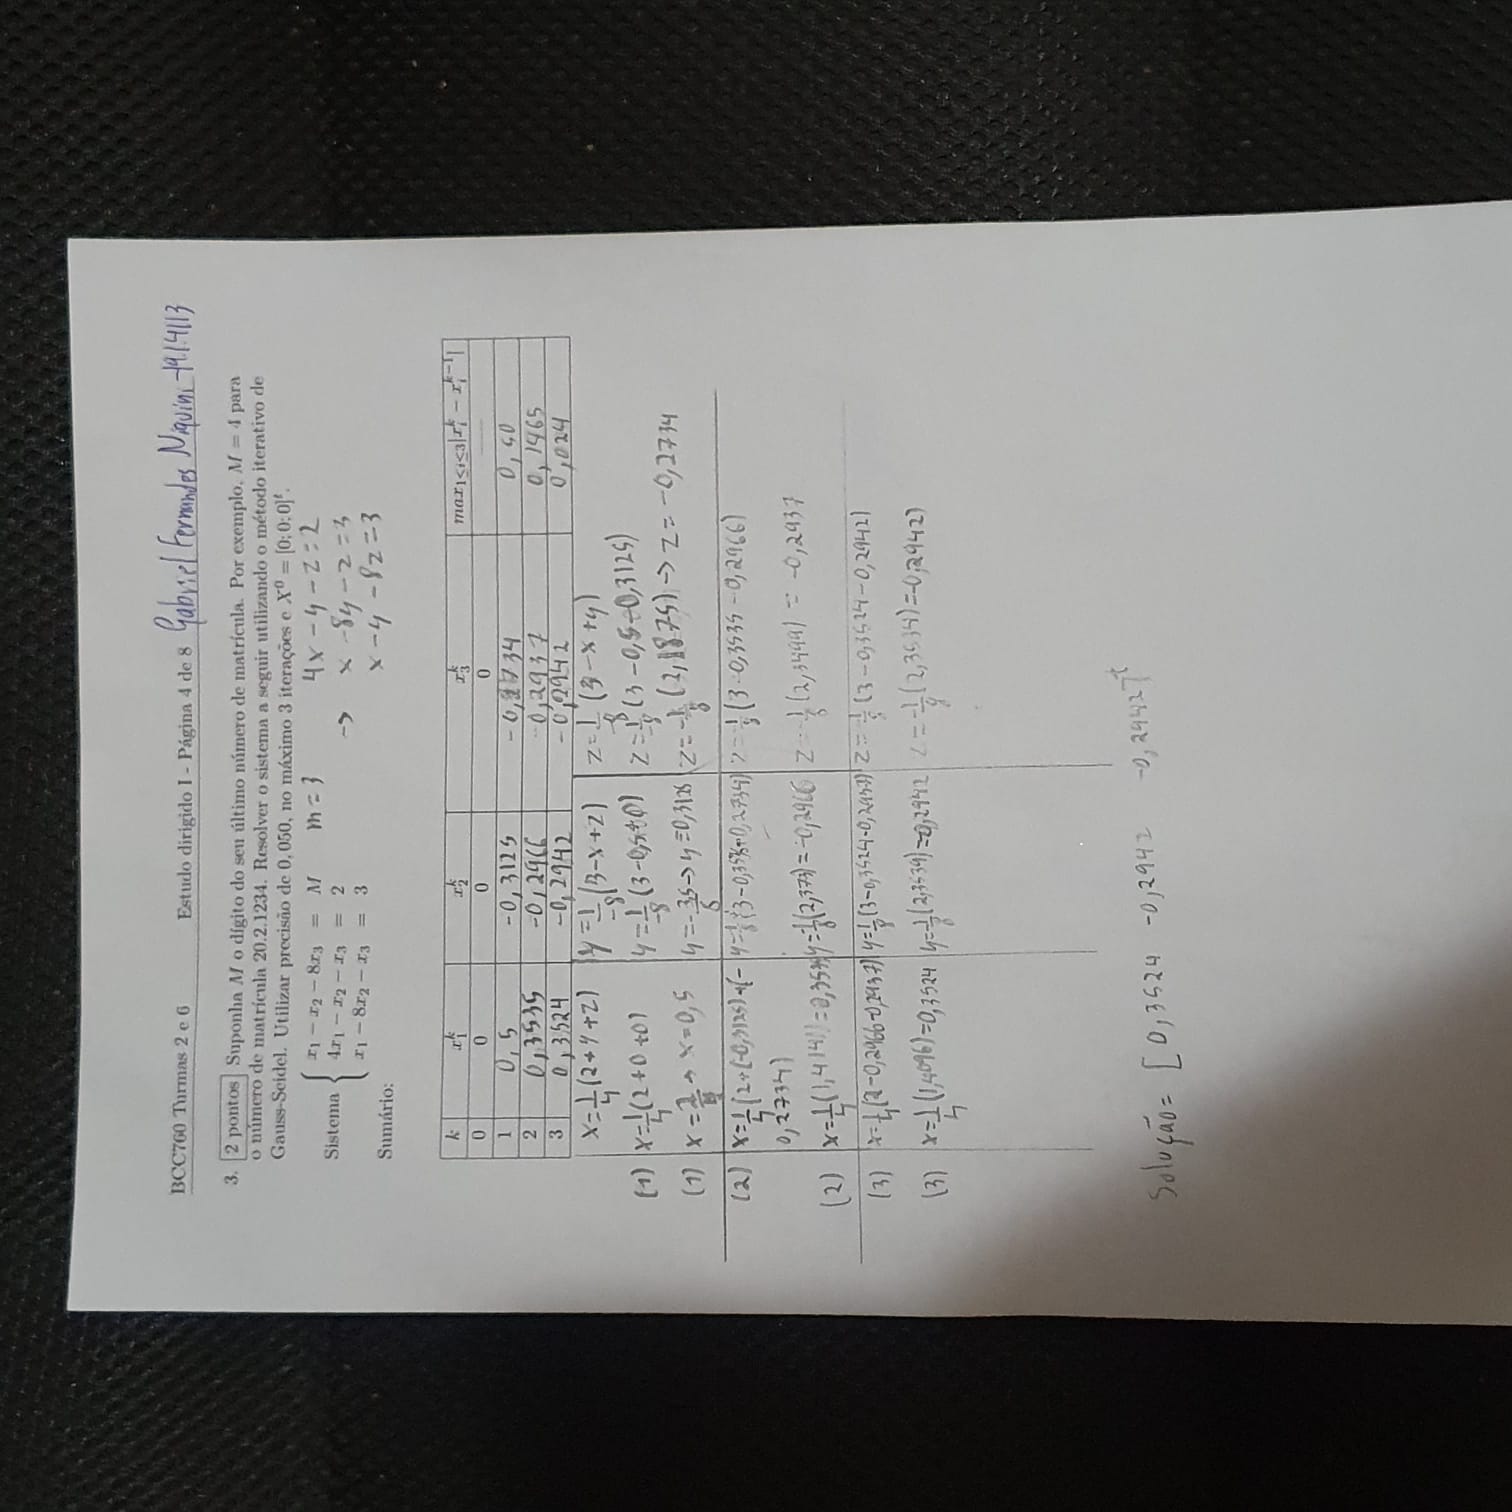 BCC760 Turmas 2 e 6 Estudo dirigido I - Página 4 de 8 Gabriel Fernandes Niquini - 19.1.4113
3. 2 pontos Suponha M o dígito do seu último número de matrícula. Por exemplo, M = 4 para
o número de matrícula 20.2.1234. Resolver o sistema a seguir utilizando o método iterativo de
Gauss-Seidel. Utilizar precisão de 0,050, no máximo 3 iterações e X⁰ = [0; 0; 0]ᵗ.
x₁ − x₂ − 8x₃ = M m = 3 4x − y − z = 2
Sistema { 4x₁ − x₂ − x₃ = 2 → x − 8y − z = 3
x₁ − 8x₂ − x₃ = 3 x − y − 8z = 3
Sumário:
k x₁ᵏ x₂ᵏ x₃ᵏ max₁≤i≤3|xᵢᵏ − xᵢᵏ⁻¹|
0 0 0 0 ——
1 0,5 -0,3125 -0,2734 0,50
2 0,3535 -0,2966 -0,2937 0,1465
3 0,3524 -0,2942 -0,2942 0,024
x=1/4(2+y+z) y=1/-8(3-x+z) z=1/-8(3-x+y)
(1) x=1/4(2+0+0) y=1/-8(3-0,5+0) z=1/-8(3-0,5-0,3125)
(1) x=2/4 → x=0,5 y=-2,5/8 → y=0,3125 z=-1/8(2,1875) → z=-0,2734
(2) x=1/4(2+(-0,3125)+(- y=-1/8(3-0,3535-0,2734) z=-1/8(3-0,3535-0,2966)
0,2734)
(2) x=1/4(1,4141)=0,3535 y=-1/8(2,373)=-0,2966 z=-1/8(2,3499) = -0,2937
(3) x=1/4(2-0,2966-0,2937) y=-1/8(3-0,3524-0,2937) z=-1/8(3-0,3524-0,2942)
(3) x=1/4(1,4096)=0,3524 y=-1/8(2,3539)=-0,2942 z=-1/8(2,3534)=-0,2942)
Solução= [0,3524 -0,2942 -0,2942]ᵗ